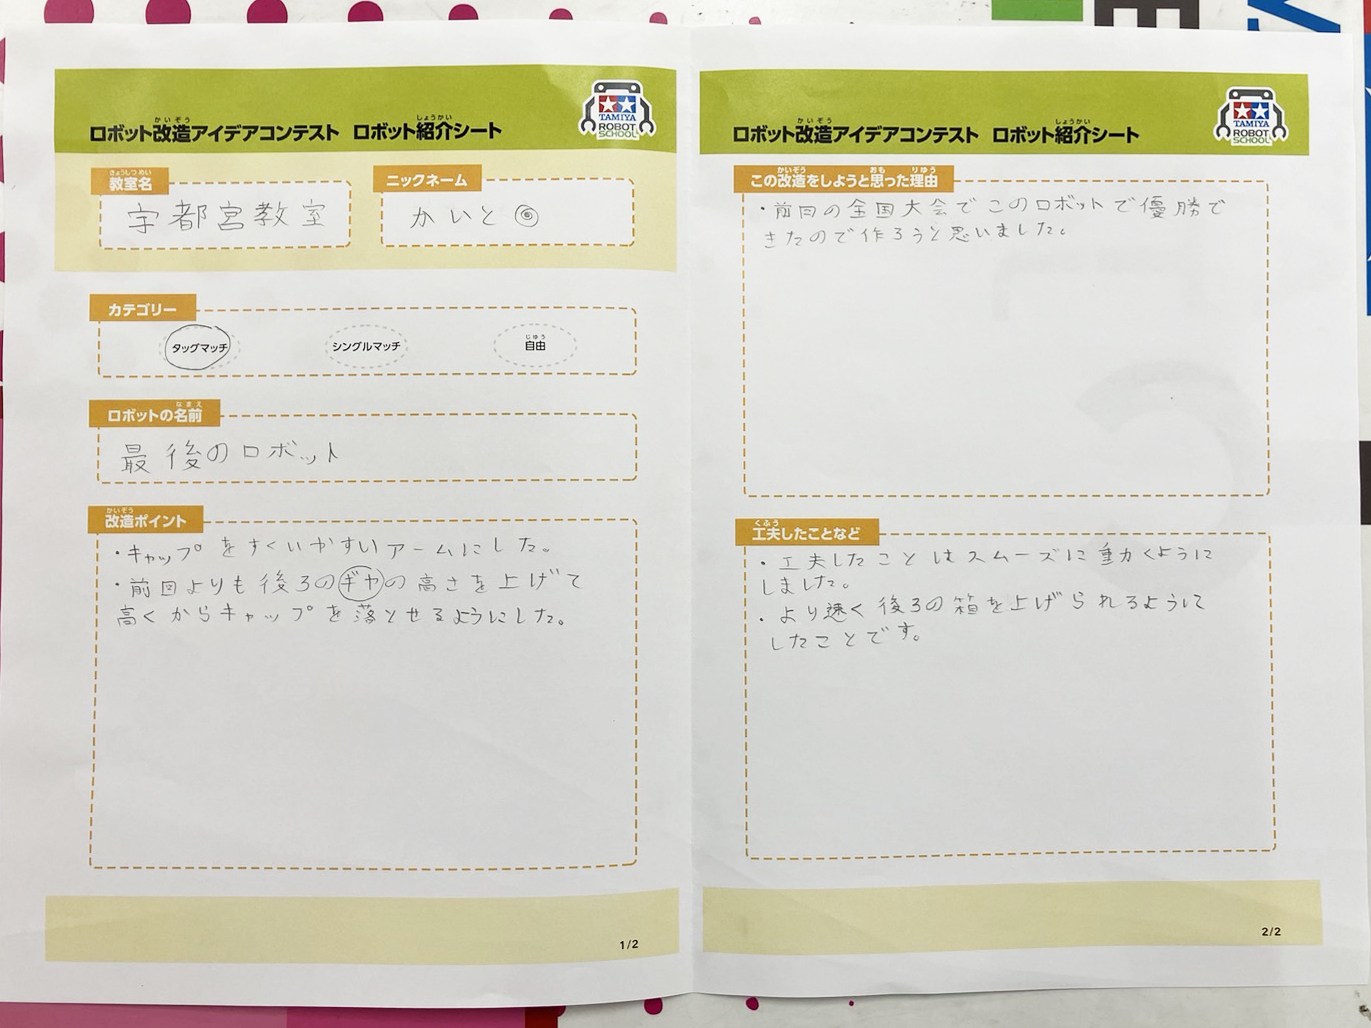 ロボット改造アイデアコンテスト ロボット紹介シート
かいぞう
しょうかい
TAMIYA
ROBOT
SCHOOL
教室名
きょうしつめい
宇都宮教室
ニックネーム
かいと
カテゴリー
タッグマッチ
シングルマッチ
自由
じゆう
ロボットの名前
なまえ
最後のロボット
改造ポイント
かいぞう
・キャップをすくいやすいアームにした。
・前回よりも後ろのギヤの高さを上げて
高くからキャップを落とせるようにした。
1/2
ロボット改造アイデアコンテスト ロボット紹介シート
かいぞう
しょうかい
TAMIYA
ROBOT
SCHOOL
この改造をしようと思った理由
かいぞう
おも
りゆう
・前回の全国大会でこのロボットで優勝で
きたので作ろうと思いました。
工夫したことなど
くふう
・工夫したことはスムーズに動くように
しました。
・より速く後ろの箱を上げられるように
したことです。
2/2